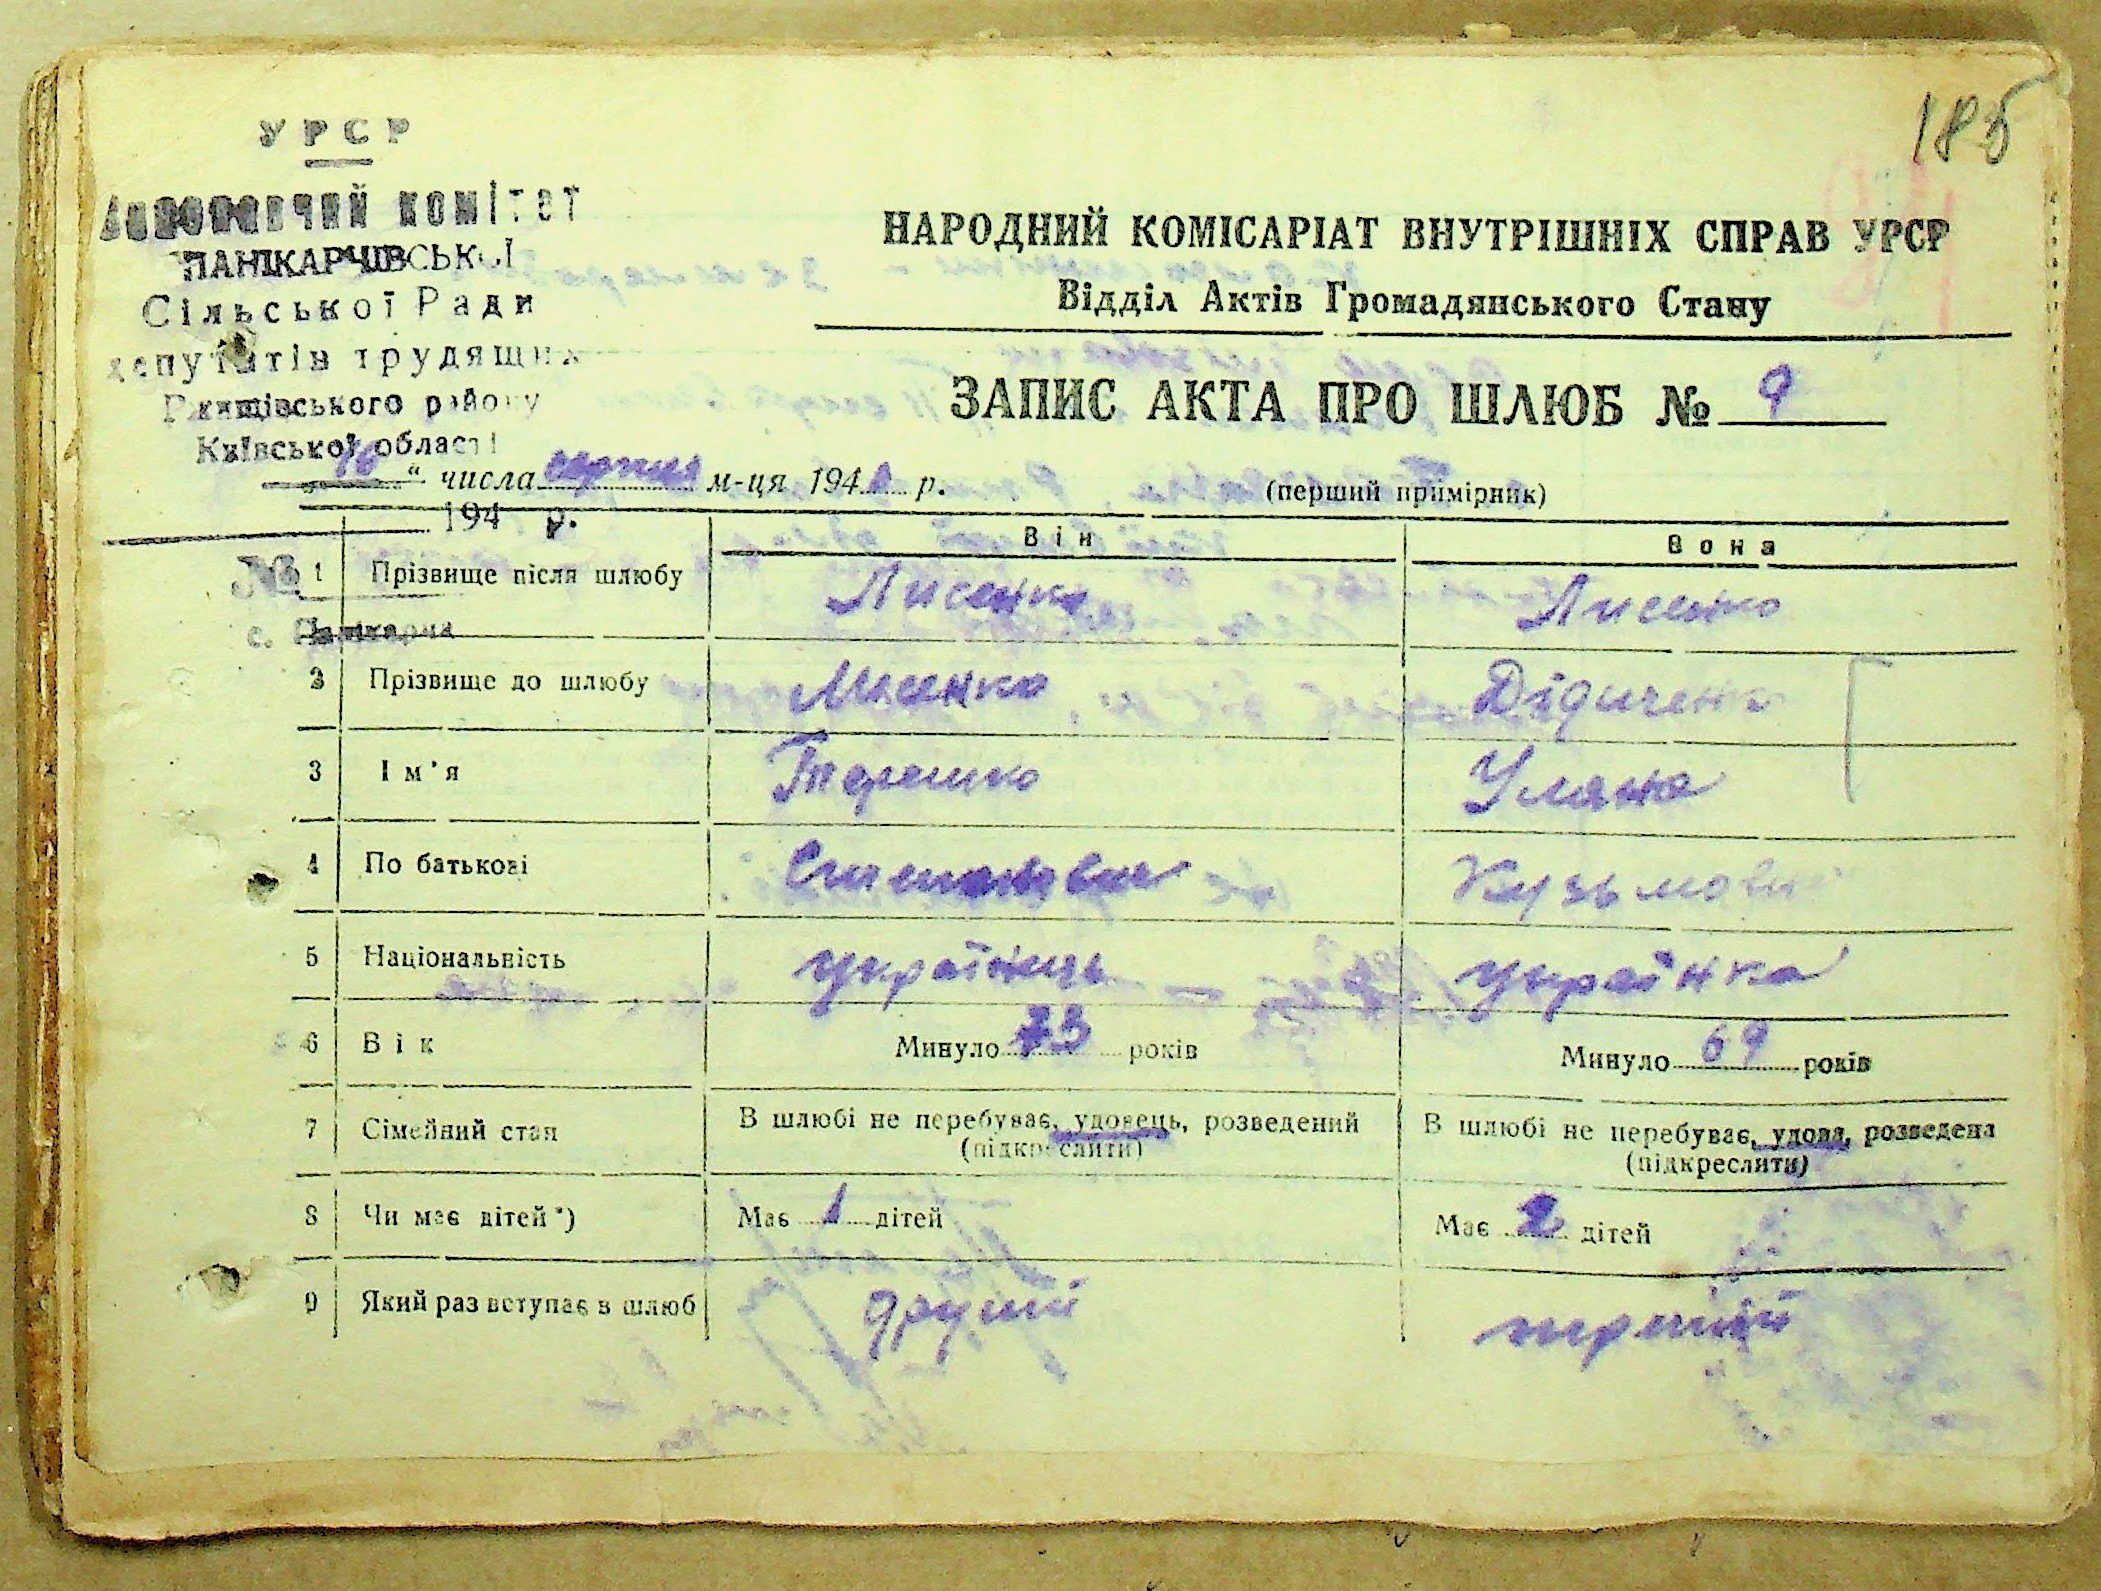 185
УРСР
Виконавчий комітет
ПАНІКАРЧІВСЬКОЇ
Сільської Ради
депутатів трудящих
Ржищівського району
Київської області
194 р.
№
с. Панікарча
НАРОДНИЙ КОМІСАРІАТ ВНУТРІШНІХ СПРАВ УРСР
Відділ Актів Громадянського Стану
ЗАПИС АКТА ПРО ШЛЮБ № 9
16 “ числа серпня м-ця 194 р.
(перший примірник)
Він Вона
1 Прізвище після шлюбу Лисенко Лисенко
2 Прізвище до шлюбу Лисенко Дідиченко
3 Ім'я Терешко Уляна
4 По батькові Кузьмовна
5 Національність українець українка
6 Вік Минуло 73 років Минуло 69 років
7 Сімейний стан В шлюбі не перебуває, удовець, розведений В шлюбі не перебуває, удова, розведена
(підкреслити) (підкреслити)
8 Чи має дітей *) Має 1 дітей Має 2 дітей
9 Який раз вступає в шлюб другий третій